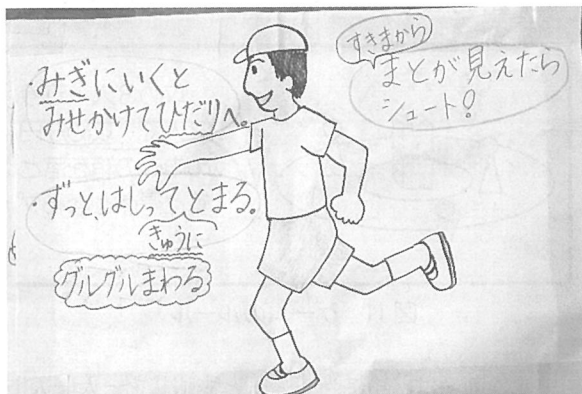 ・みぎにいくと
みせかけてひだりへ。
・ずっと、はしってとまる。
きゅうに
グルグルまわる
すきまから
まとが見えたら
シュート!